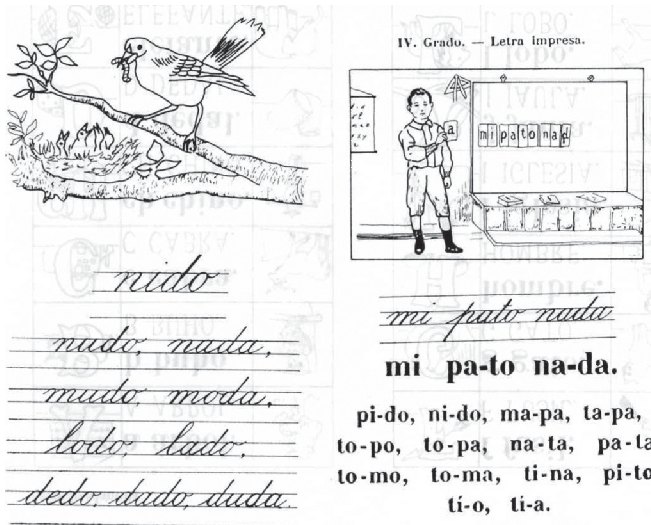 nido
nudo, nuda,
mudo moda,
lodo, lado,
dedo, dado, duda.
IV. Grado. — Letra impresa.
a
mipatonad
mi pato nada
mi pa-to na-da.
pi-do, ni-do, ma-pa, ta-pa,
to-po, to-pa, na-ta, pa-ta
to-mo, to-ma, ti-na, pi-to
tí-o, tí-a.